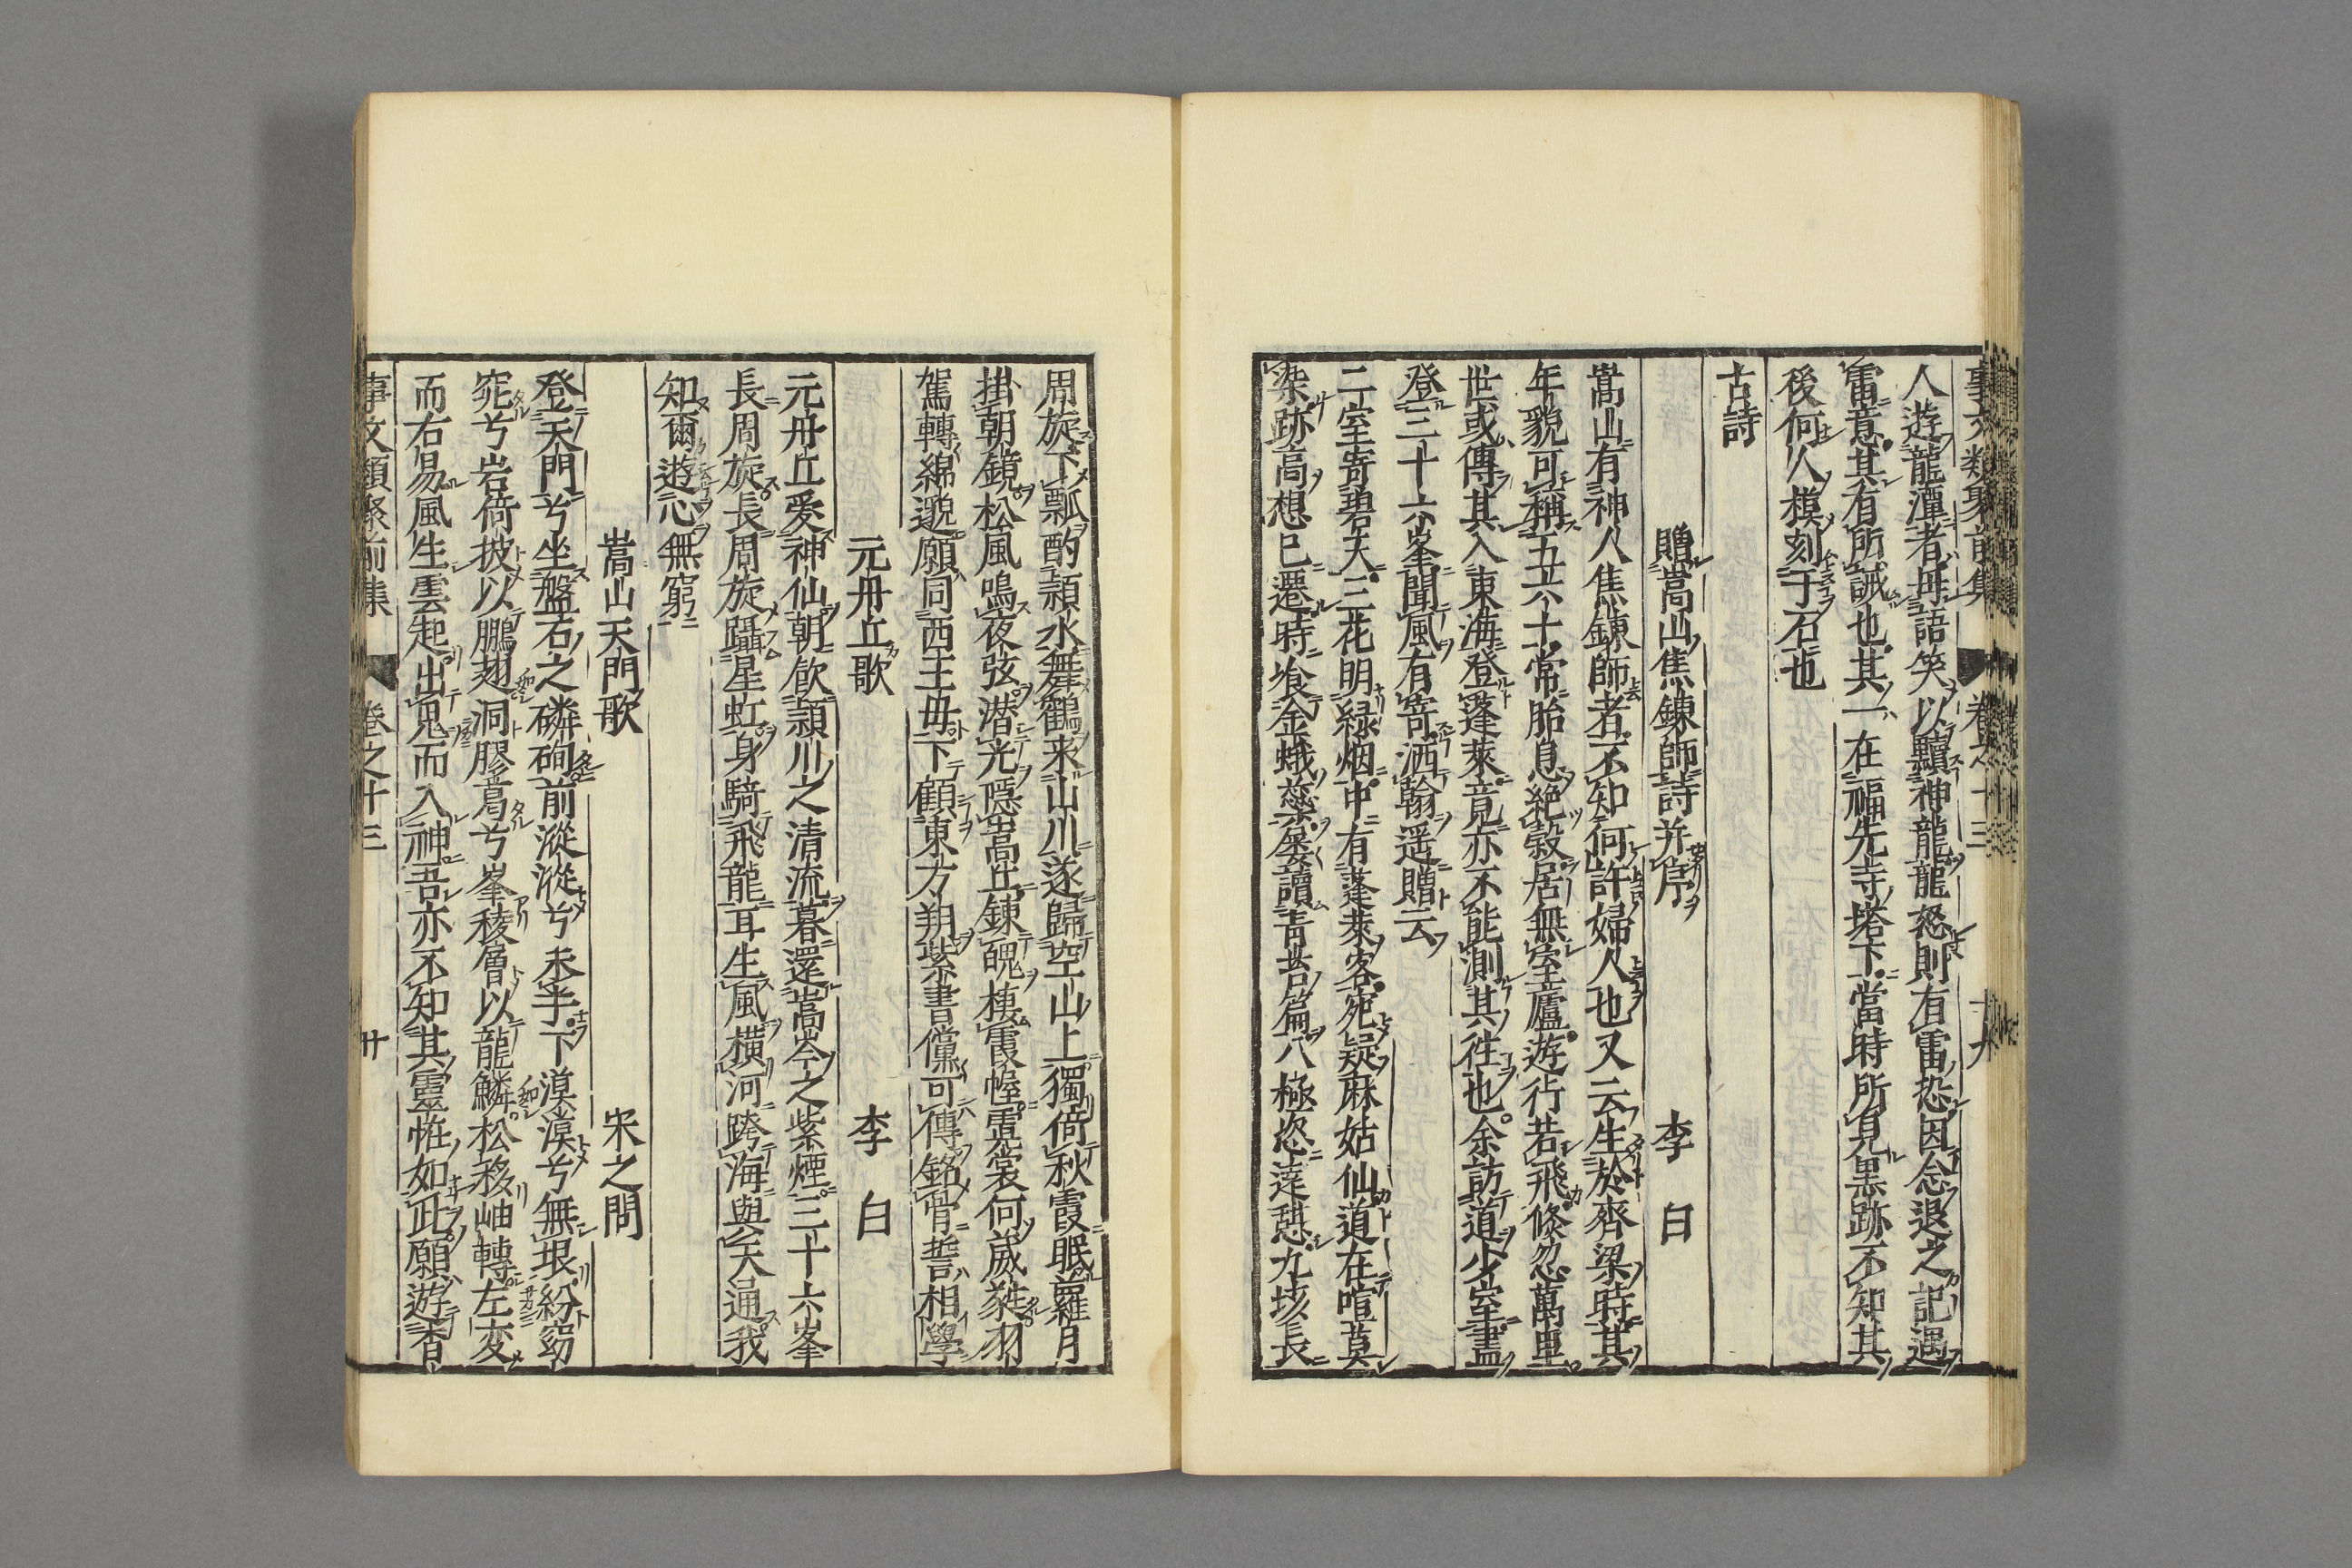 事文類聚前集 卷之十三 十九
人遊龍潭者毋語笑以黷神龍龍怒則有雷恐因念退之記遇
雷意其有所誡也其一在福先寺塔下當時所見墨跡不知其
後何人模刻于石也
古詩
贈嵩山焦鍊師詩并序 李白
嵩山有神人焦鍊師者不知何許婦人也又云生於齊梁時其
年貌可稱五六十常胎息絶穀居無室廬遊行若飛倐忽萬里
世或傳其入東海登蓬萊竟亦不能測其徃也余訪道少室盡
登三十六峯聞風有寄洒翰遥贈云
二室寄碧天三花明緑烟中有蓬萊客宛疑麻姑仙道在喧莫
染跡高想已遷時飡金蛾蘂屡讀青苔篇八極恣逹憇九垓長
周旋下瓢酌頴水舞鶴来山川遂歸空山上獨倚秋霞眠蘿月
掛朝鏡松風鳴夜弦潜光隠嵩岳錬魄棲雲幄霓裳何葳蕤羽
駕轉綿邈願同西王母下顧東方朔紫書儻可傳銘骨誓相學
元丹丘歌 李白
元丹丘愛神仙朝飲頴川之清流暮還嵩岑之紫煙三十六峯
長周旋長周旋躡星虹身騎飛龍耳生風横河跨海與天通我
知爾遊心無窮
嵩山天門歌 宋之問
登天門兮坐盤石之磷砠前漎漎兮未半下漠漠兮無垠紛窈
窕兮岩倚披以鵬翅洞膠葛兮峯稜層以龍鱗松移岫轉左変
而右易風生雲起出鬼而入神吾亦不知其靈恠如此願遊杳
事文類聚前集 卷之十三 廿